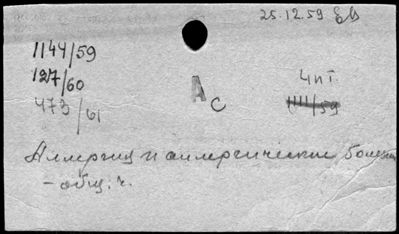 25.12.59
1144/59
127/60
473/61
А
с
4 п I.
1111/59
Аллергия и аллергические болезни
– общ. ч.